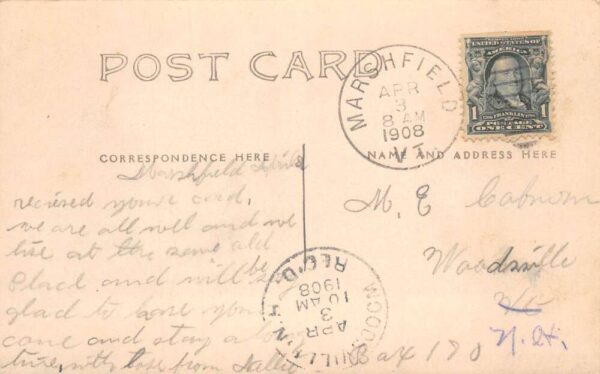 POST CARD
MARSHFIELD
APR
3
8 AM
1908
VT.
UNITED STATES OF AMERICA
1 FRANKLIN 1
POSTAGE
ONE CENT
CORRESPONDENCE HERE
NAME AND ADDRESS HERE
Marshfield
recieved youre card,
we are all well and we
live at the same old
Place and will be
glad to have you
come and stay a long
time, with love from
M. E
Woodsville
N.H.
Box 170
REC'D.
10 AM
1908
APR
3